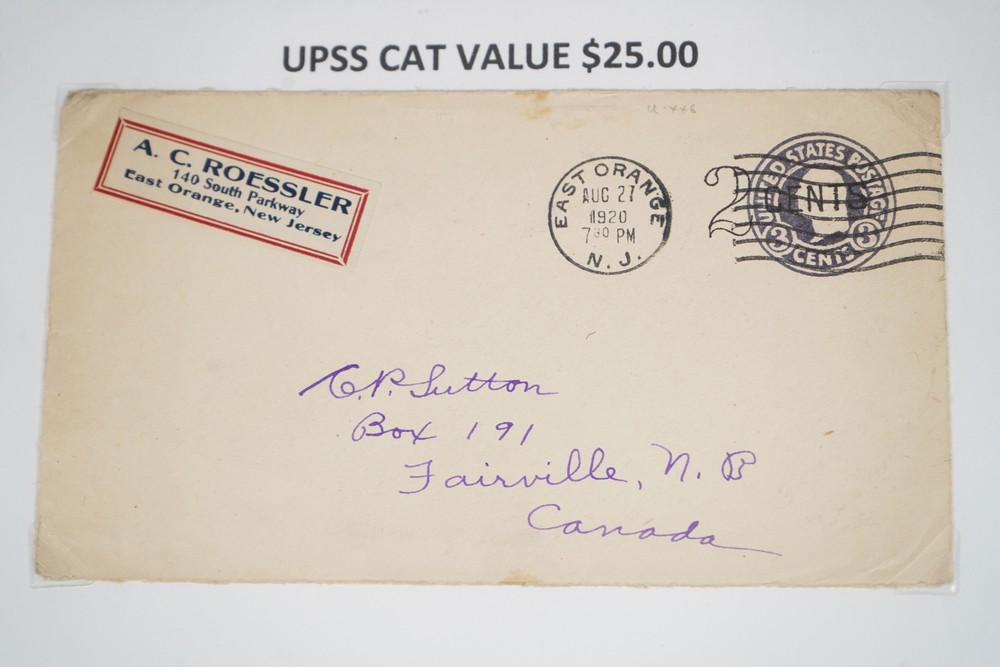 UPSS CAT VALUE $25.00
U-446
A. C. ROESSLER
140 South Parkway
East Orange, New Jersey
EAST ORANGE
AUG 27
1920
7 30 PM
N. J.
UNITED STATES POSTAGE
2 CENTS
3 3
CENTS
C. P. Sutton
Box 191
Fairville, N. B
Canada